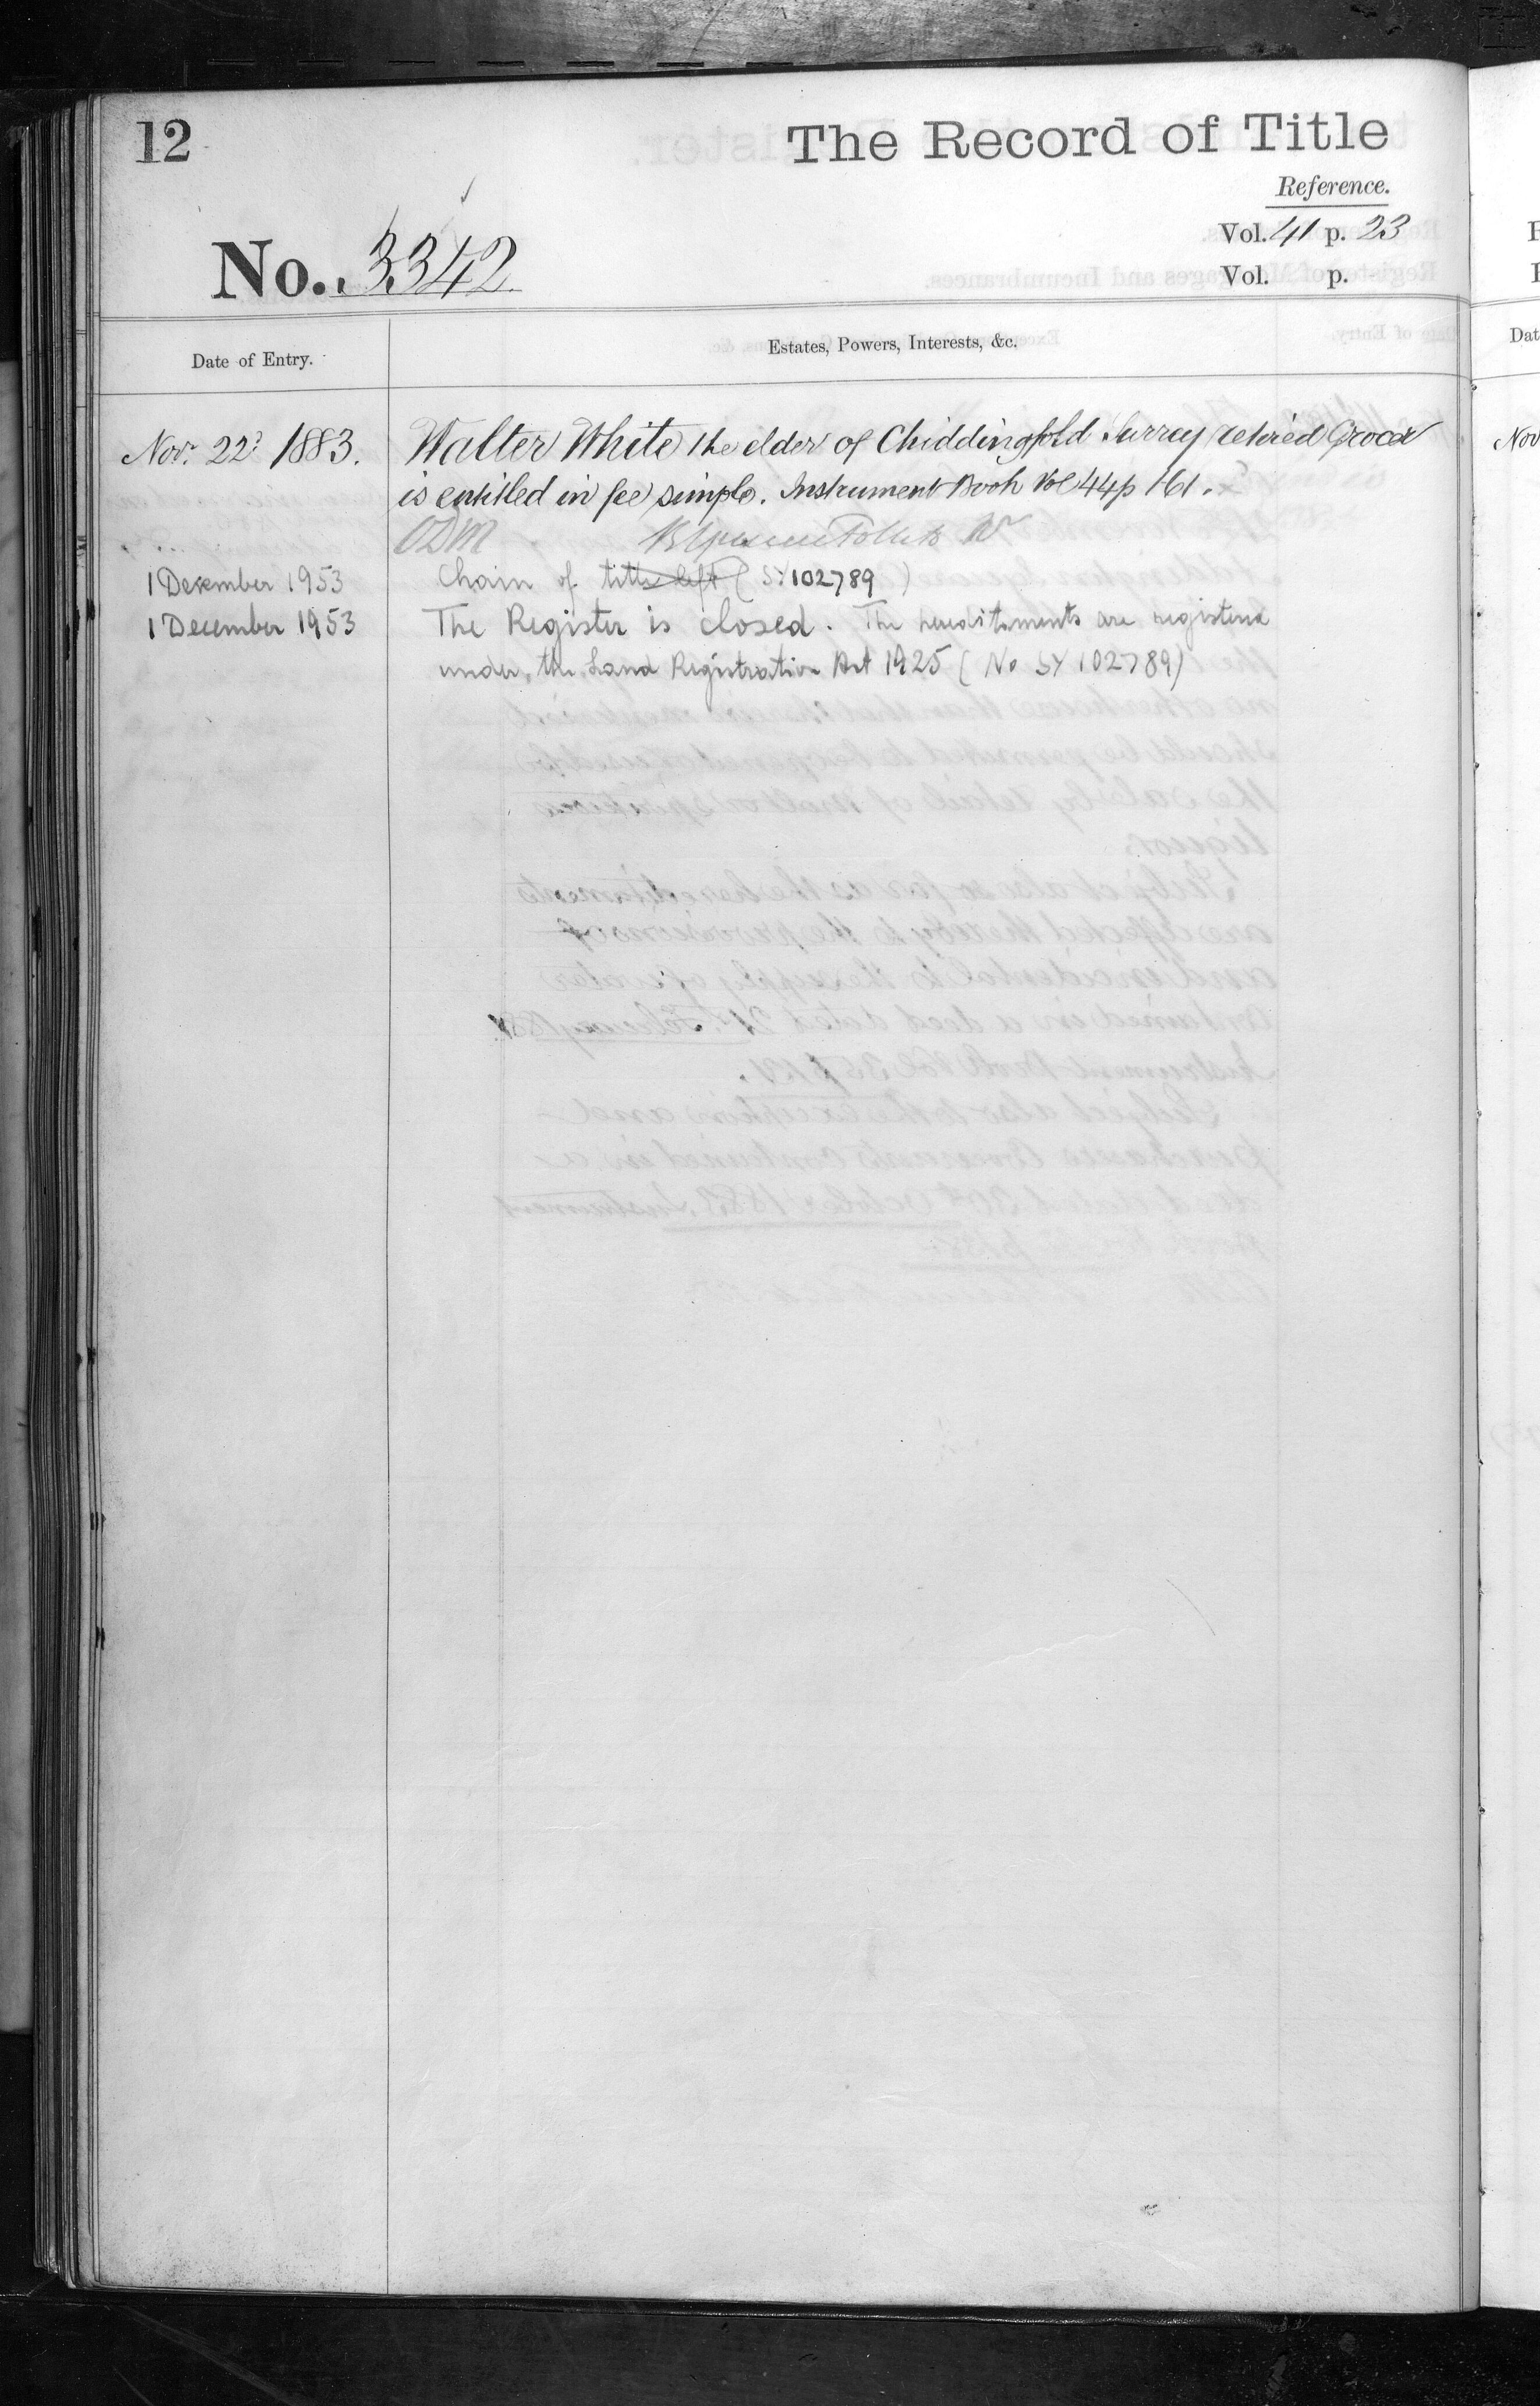 12
The Record of Title
Reference.
Vol. 41 p. 23
No. 3342
Vol. p.
Date of Entry.
Estates, Powers, Interests, &c.
Nov. 22d 1883.
Walter White the elder of Chiddingfold Surrey retired Grocer
is entitled in fee simple. Instrument Book Vol 44 p 161.
ODM
1 December 1953
Chain of title left (SY102789)
1 December 1953
The Register is closed. The hereditaments are registered
under the Land Registration Act 1925 (No SY 102789)
Dat
Nov